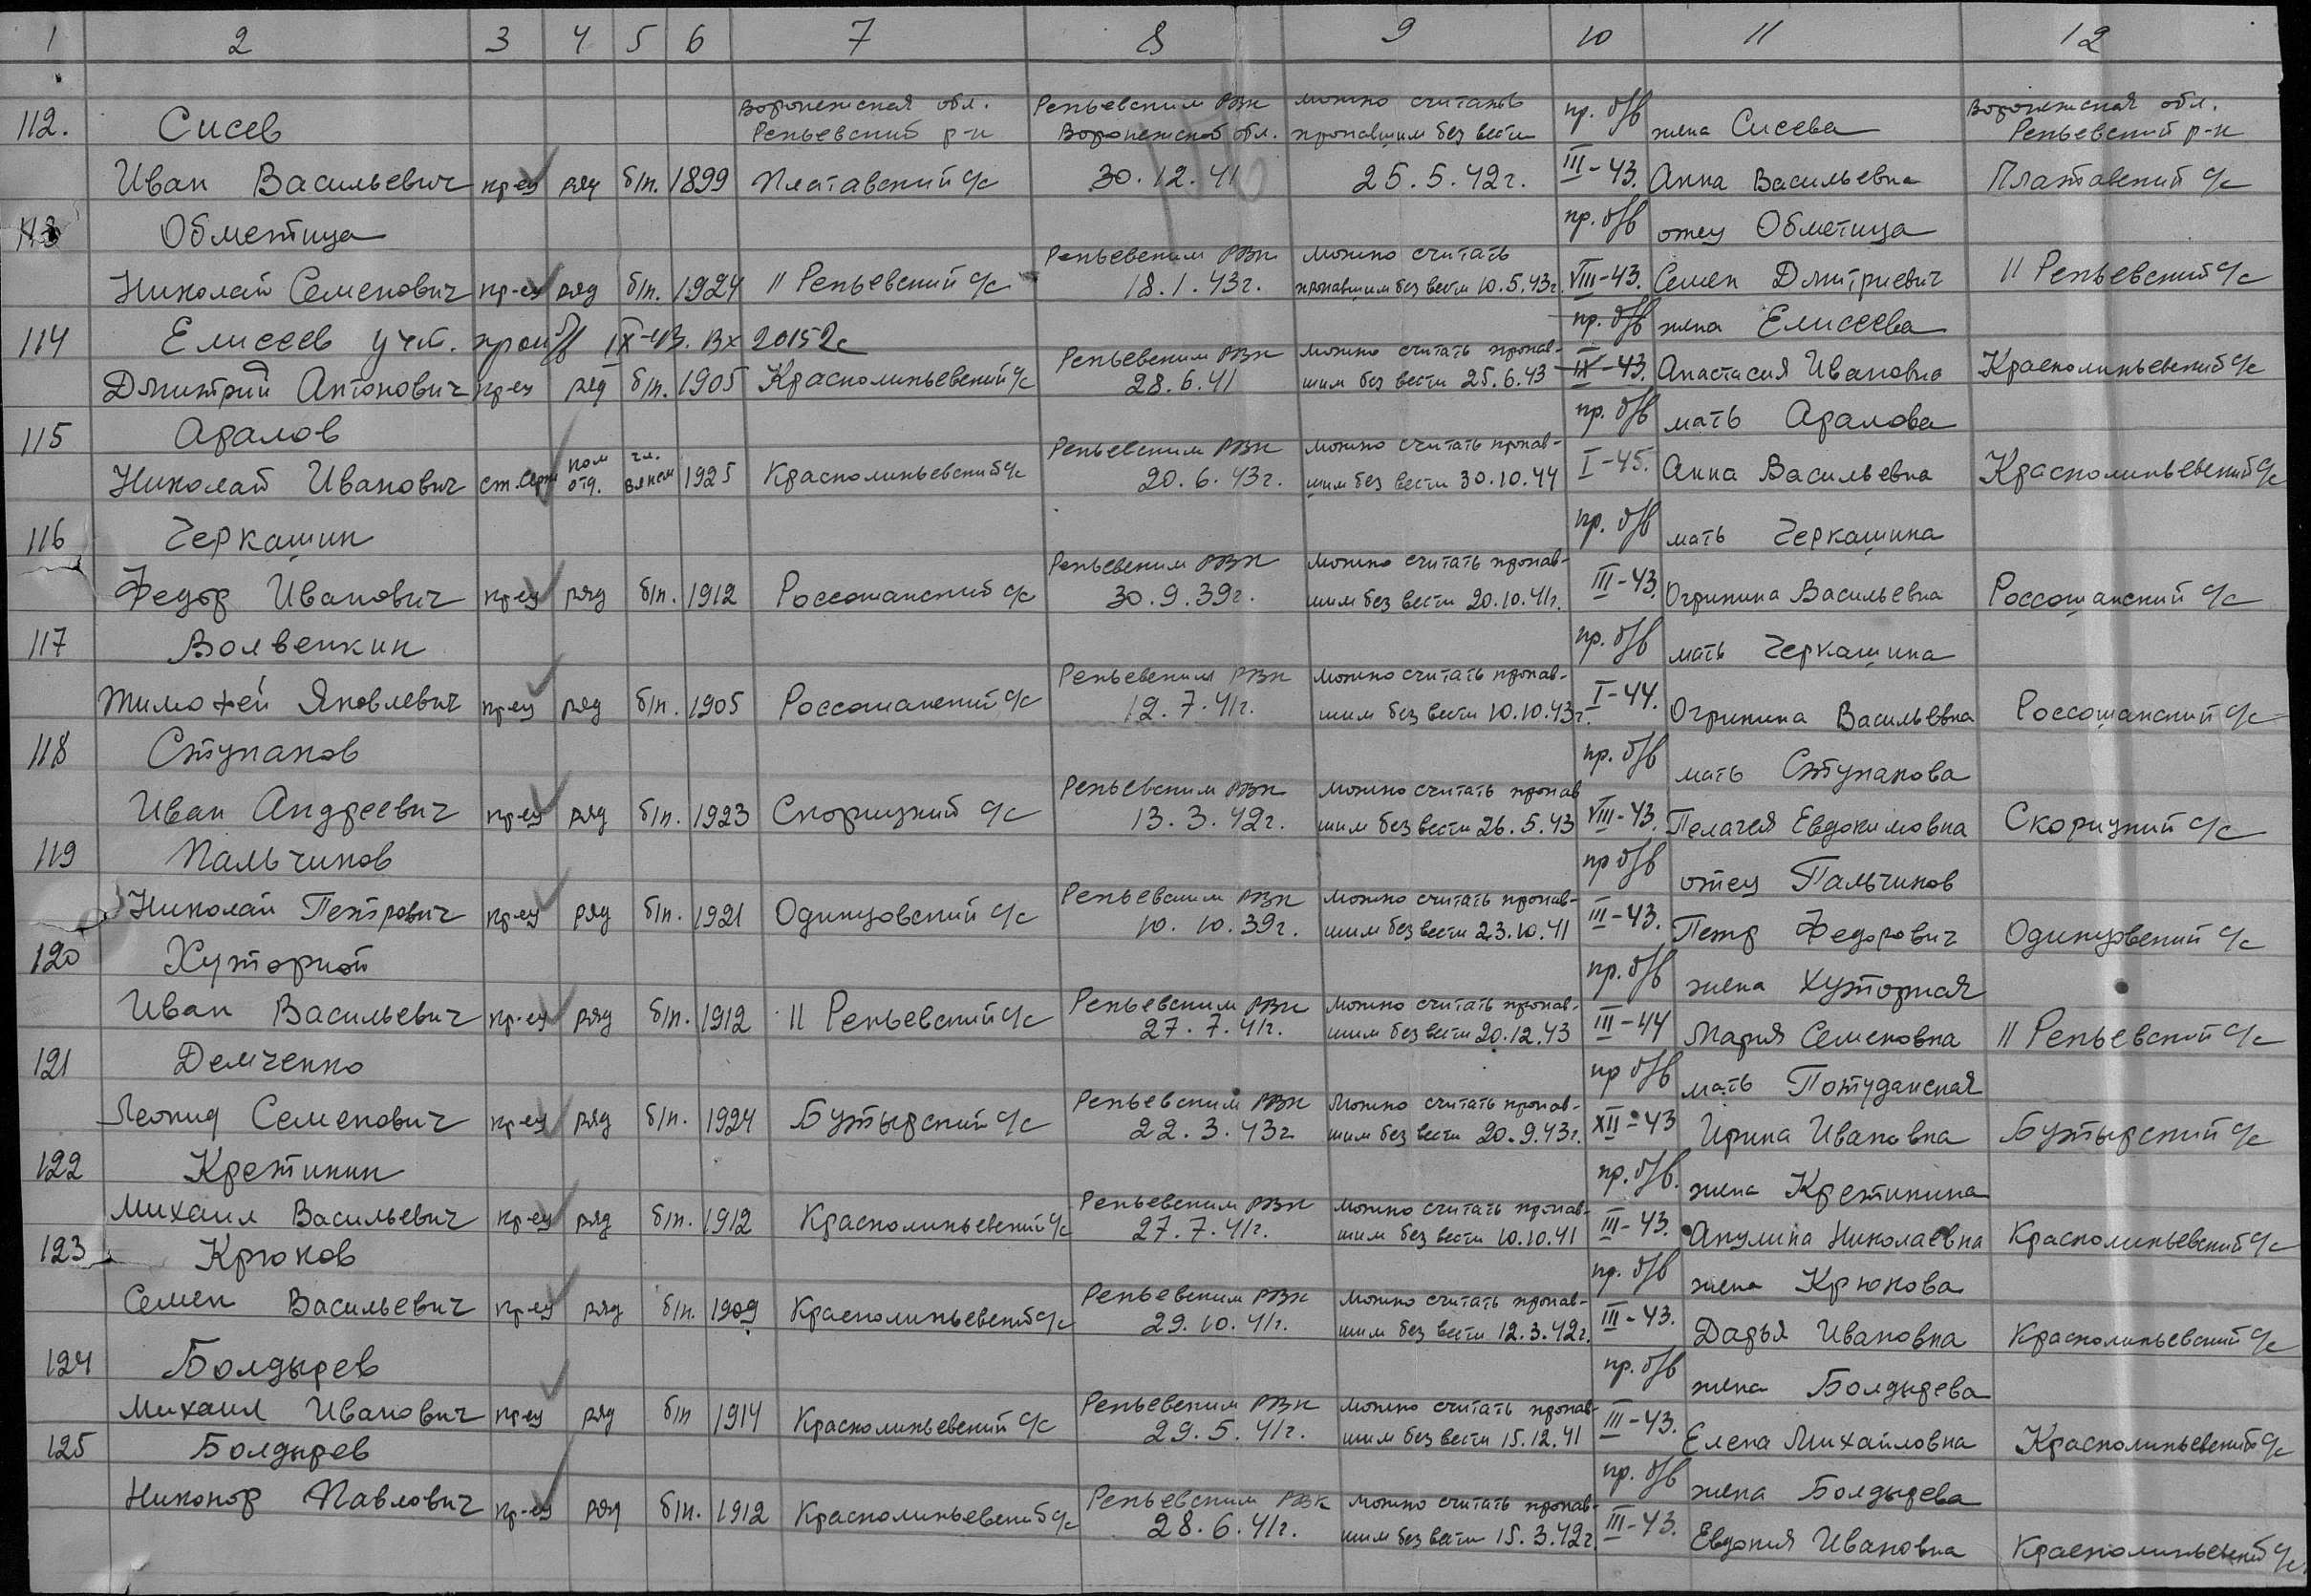 1 2 3 4 5 6 7 8 9 10 11 12
Воронежская обл. Репьевским РВК можно считать пр. б/в Воронежская обл.
112. Сисев Репьевский р-н Воронежской обл. пропавшим без вести жена Сисева Репьевский р-н
Иван Васильевич кр-ец ряд б/п. 1899 Платавский с/с 30.12.41 25.5.42г. III-43. Анна Васильевна Платавский с/с
113 Обметица Репьевским РВК можно считать пр. б/в отец Обметица
Николай Семенович кр-ец ряд б/п. 1924 II Репьевский с/с 18.1.43г. пропавшим без вести 10.5.43г. VIII-43. Семен Дмитриевич II Репьевский с/с
114 Елисеев учт. проп б/в IX-43. Вх 20152с Репьевским РВК можно считать пропав- пр. б/в жена Елисеева
Дмитрий Антонович кр-ец ряд б/п. 1905 Краснолипьевский с/с 28.6.41 шим без вести 25.6.43 IX-43. Анастасия Ивановна Краснолипьевский с/с
115 Аралов пом чл. Репьевским РВК можно считать пропав- пр. б/в мать Аралова
Николай Иванович ст. серж отд. ВЛКСМ 1925 Краснолипьевский с/с 20.6.43г. шим без вести 30.10.44 I-45. Анна Васильевна Краснолипьевский с/с
116 Черкашин Репьевским РВК можно считать пропав- пр. б/в мать Черкашина
Федор Иванович кр-ец ряд б/п. 1912 Россошанский с/с 30.9.39г. шим без вести 20.10.41г. III-43. Огрипина Васильевна Россошанский с/с
117 Волвенкин Репьевским РВК можно считать пропав- пр. б/в мать Черкашина
Тимофей Яковлевич кр-ец ряд б/п. 1905 Россошанский с/с 12.7.41г. шим без вести 10.10.43г. I-44. Огрипина Васильевна Россошанский с/с
118 Ступаков Репьевским РВК можно считать пропав пр. б/в мать Ступакова
Иван Андреевич кр-ец ряд б/п. 1923 Скорицкий с/с 13.3.42г. шим без вести 26.5.43 VIII-43. Пелагея Евдокимовна Скорицкий с/с
119 Пальчиков Репьевским РВК можно считать пропав- пр б/в отец Пальчиков
Николай Петрович кр-ец ряд б/п. 1921 Одинцовский с/с 10.10.39г. шим без вести 23.10.41 III-43. Петр Федорович Одинцовский с/с
120 Хуторной Репьевским РВК можно считать пропав- пр. б/в жена Хуторная
Иван Васильевич кр-ец ряд б/п. 1912 II Репьевский с/с 27.7.41г. шим без вести 20.12.43 III-44 Мария Семеновна II Репьевский с/с
121 Демченко Репьевским РВК можно считать пропав- пр б/в мать Потуданская
Леонид Семенович кр-ец ряд б/п. 1924 Бутырский с/с 22.3.43г шим без вести 20.9.43г. XII-43 Ирина Ивановна Бутырский с/с
122 Кретинин Репьевским РВК можно считать пропав- пр. б/в. жена Кретинина
Михаил Васильевич кр-ец ряд б/п. 1912 Краснолипьевский с/с 27.7.41г. шим без вести 10.10.41 III-43. Акулина Николаевна Краснолипьевский с/с
123 Крюков Репьевским РВК можно считать пропав- пр. б/в жена Крюкова
Семен Васильевич кр-ец ряд б/п. 1909 Краснолипьевский с/с 29.10.41г. шим без вести 12.3.42г. III-43. Дарья Ивановна Краснолипьевский с/с
124 Болдырев Репьевским РВК можно считать пропав- пр. б/в жена Болдырева
Михаил Иванович кр-ец ряд б/п 1914 Краснолипьевский с/с 29.5.41г. шим без вести 15.12.41 III-43. Елена Михайловна Краснолипьевский с/с
125 Болдырев Репьевским РВК можно считать пропав- пр. б/в жена Болдырева
Никонор Павлович кр-ец ряд б/п. 1912 Краснолипьевский с/с 28.6.41г. шим без вести 15.3.42г. III-43. Евдокия Ивановна Краснолипьевский с/с